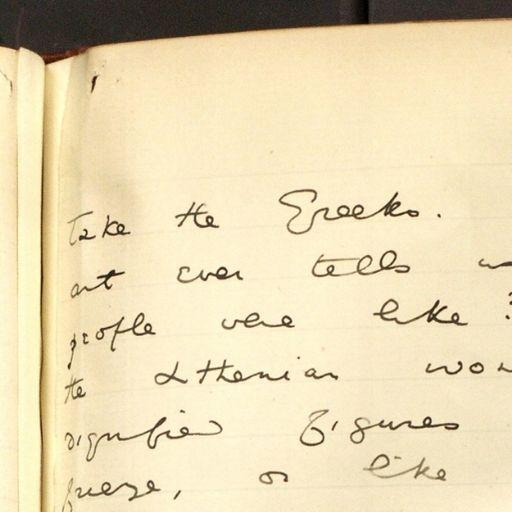 Take the Greeks.
art ever tells us
people were like?
the Athenian wom
dignified figures
frieze, or like